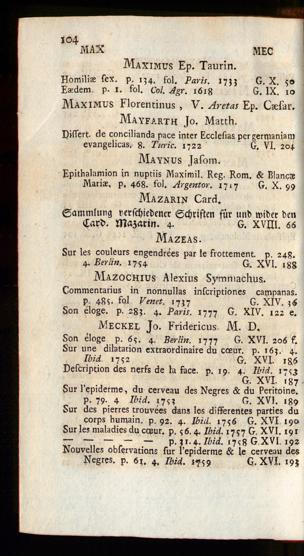 104
MAX MEC
MAXIMUS Ep. Taurin.
Homiliæ sex. p. 134. fol. Paris. 1733 G. X. 50
Eædem. p. 1. fol. Col. Agr. 1618 G. IX. 10
MAXIMUS Florentinus, V. Aretas Ep. Cæsar.
MAYFARTH Jo. Matth.
Dissert. de concilianda pace inter Ecclesias per germaniam
evangelicas. 8. Turic. 1722 G. VI. 204
MAYNUS Jasom.
Epithalamion in nuptiis Maximil. Reg. Rom. & Blancæ
Mariæ, p. 468. fol. Argentor. 1717 G. X. 99
MAZARIN Card.
Sammlung verschiedener Schriften für und wider den
Card. Mazarin. 4. G. XVIII. 66
MAZEAS.
Sur les couleurs engendrées par le frottement. p. 248.
4. Berlin. 1754 G. XVI. 188
MAZOCHIUS Alexius Symmachus.
Commentarius in nonnullas inscriptiones campanas.
p. 485. fol Venet. 1737 G. XIV. 36
Son éloge. p. 283. 4. Paris. 1777 G. XIV. 122 e.
MECKEL Jo. Fridericus M. D.
Son éloge p. 65. 4. Berlin. 1777 G. XVI. 206 f.
Sur une dilatation extraordinaire du cœur. p. 163. 4.
Ibid. 1752 G. XVI. 186
Description des nerfs de la face. p. 19. 4. Ibid. 1753
G. XVI. 187
Sur l'epiderme, du cerveau des Negres & du Peritoine.
p. 79. 4 Ibid. 1753 G. XVI. 189
Sur des pierres trouvées dans les differentes parties du
corps humain. p. 92. 4. Ibid. 1756 G. XVI. 190
Sur les maladies du cœur. p. 56. 4. Ibid. 1757 G. XVI. 191
— — — — — p. 31. 4. Ibid. 1758 G. XVI. 192
Nouvelles observations sur l'epiderme & le cerveau des
Negres. p. 61. 4. Ibid. 1759 G. XVI. 193